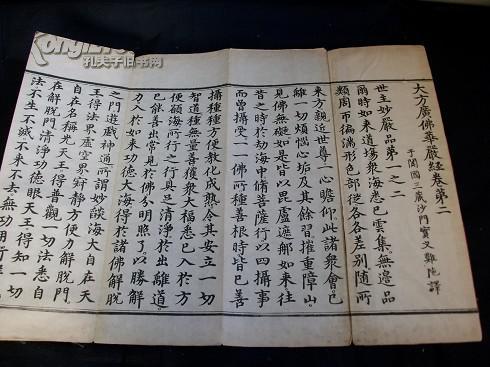 大方廣佛華嚴經卷第二
于闐國三藏沙門實叉難陀譯
世主妙嚴品第一之二
爾時如來道場眾海悉已雲集無邊品
類周帀徧滿形色部從各各差別隨所
來方親近世尊一心瞻仰此諸眾會已
離一切煩惱心垢及其餘習摧重障山
見佛無礙如是皆以毘盧遮那如來往
昔之時於劫海中修菩薩行以四攝事
而曾攝受一一佛所種善根時皆已善
攝種種方便教化成熟令其安立一切
智道種無量善獲眾大福悉已入於方
便願海所行之行具足清淨於出離道
已能善出常見於佛分明照了以勝解
力入於如來功德大海得於諸佛解脫
之門遊戲神通所謂妙燄海大自在天
王得法界虛空界寂靜方便力解脫門
自在名稱光天王得普觀一切法悉自
在解脫門清淨功德眼天王得知一切
法不生不滅不來不去無功用行
孔夫子旧书网